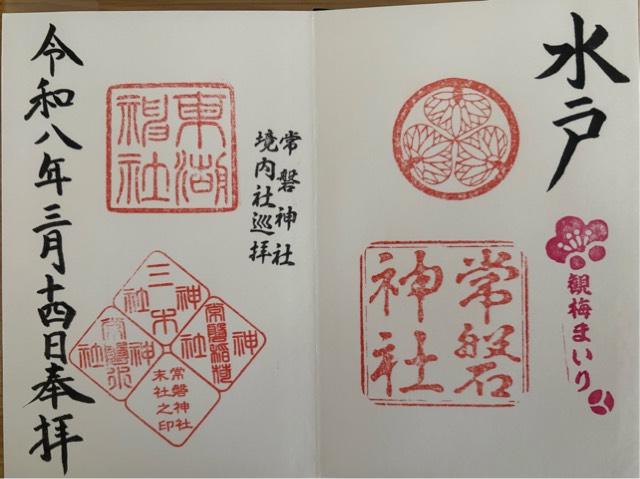 水戸
観梅まいり
常磐神社
常磐神社
境内社巡拝
東湖神社
三木神社
常磐稲荷神社
常磐神社
末社之印
令和八年三月十四日奉拝